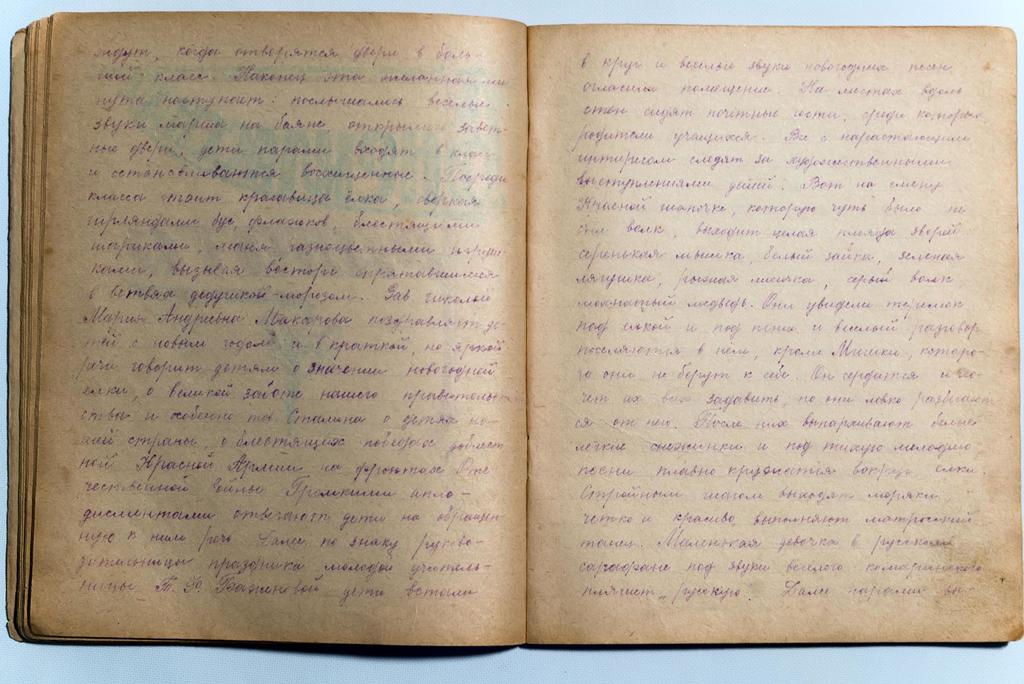 ждут, когда отворятся двери в боль-
шой класс. Наконец эта желанная ми-
нута наступает: послышались веселые
звуки марша на баяне, открылись завет-
ные двери, дети парами входят в класс
и останавливаются восхищенные. Посреди
класса стоит красавица ёлка, сверкая
гирляндами бус, флажков, блестящими
шариками, маня разноцветными игруш-
ками, вызывая восторг спрятавшимся
в ветвях дедушкой-морозом. Зав. школой
Мария Андреевна Макарова поздравляет де-
тей с новым годом и в краткой, но яркой
речи говорит детям о значении новогодней
елки, о великой заботе нашего правитель-
ства и особенно тов. Сталина о детях на-
шей страны, о блестящих победах доблест-
ной Красной Армии на фронтах Оте-
чественной войны. Громкими апло-
дисментами отвечают дети на обращен-
ную к ним речь. Далее по знаку руково-
дительницы праздника молодой учитель-
ницы Т. Ф. Важеновой дети встали
в круг и веселые звуки новогодних песен
огласили помещение. На местах вдоль
стен сидят почетные гости, среди которых
родители учащихся. Все с нарастающим
интересом следят за художественными
выступлениями детей. Вот на смену
Красной шапочке, которую чуть было не
съел волк, выходит целая плеяда зверей:
серенькая мышка, белый зайка, зеленая
лягушка, рыжая лисичка, серый волк
мохнатый медведь. Они увидели теремок
под ёлкой и под пение и веселый разговор
поселяются в нем, кроме Мишки, которо-
го они не берут к себе. Он сердится и хо-
чет их всех задавить, но они ловко разбегают-
ся от него. После них выпархивают белые
легкие снежинки и под тихую мелодию
песни плавно кружатся вокруг елки.
Стройным шагом выходят моряки,
четко и красиво выполняют матросский
танец. Маленькая девочка в русском
сарафане под звуки веселого камаринского
пляшет „русскую“. Далее парами вы-